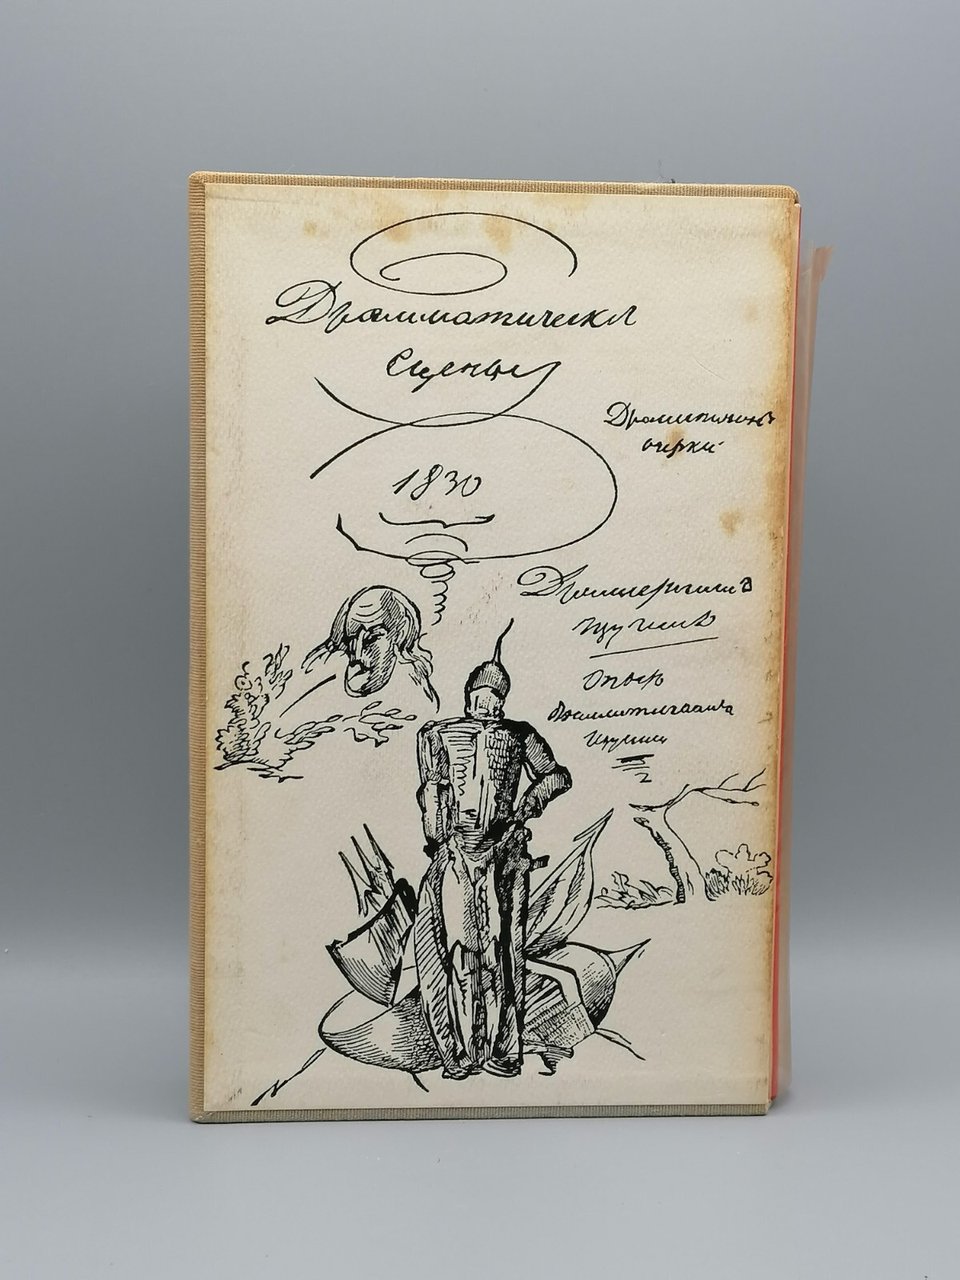 Драмматическія
сцены
1830
Драматическіе
очерки
Драмматическія
изученія
Опытъ
Драмматическихъ
изученій